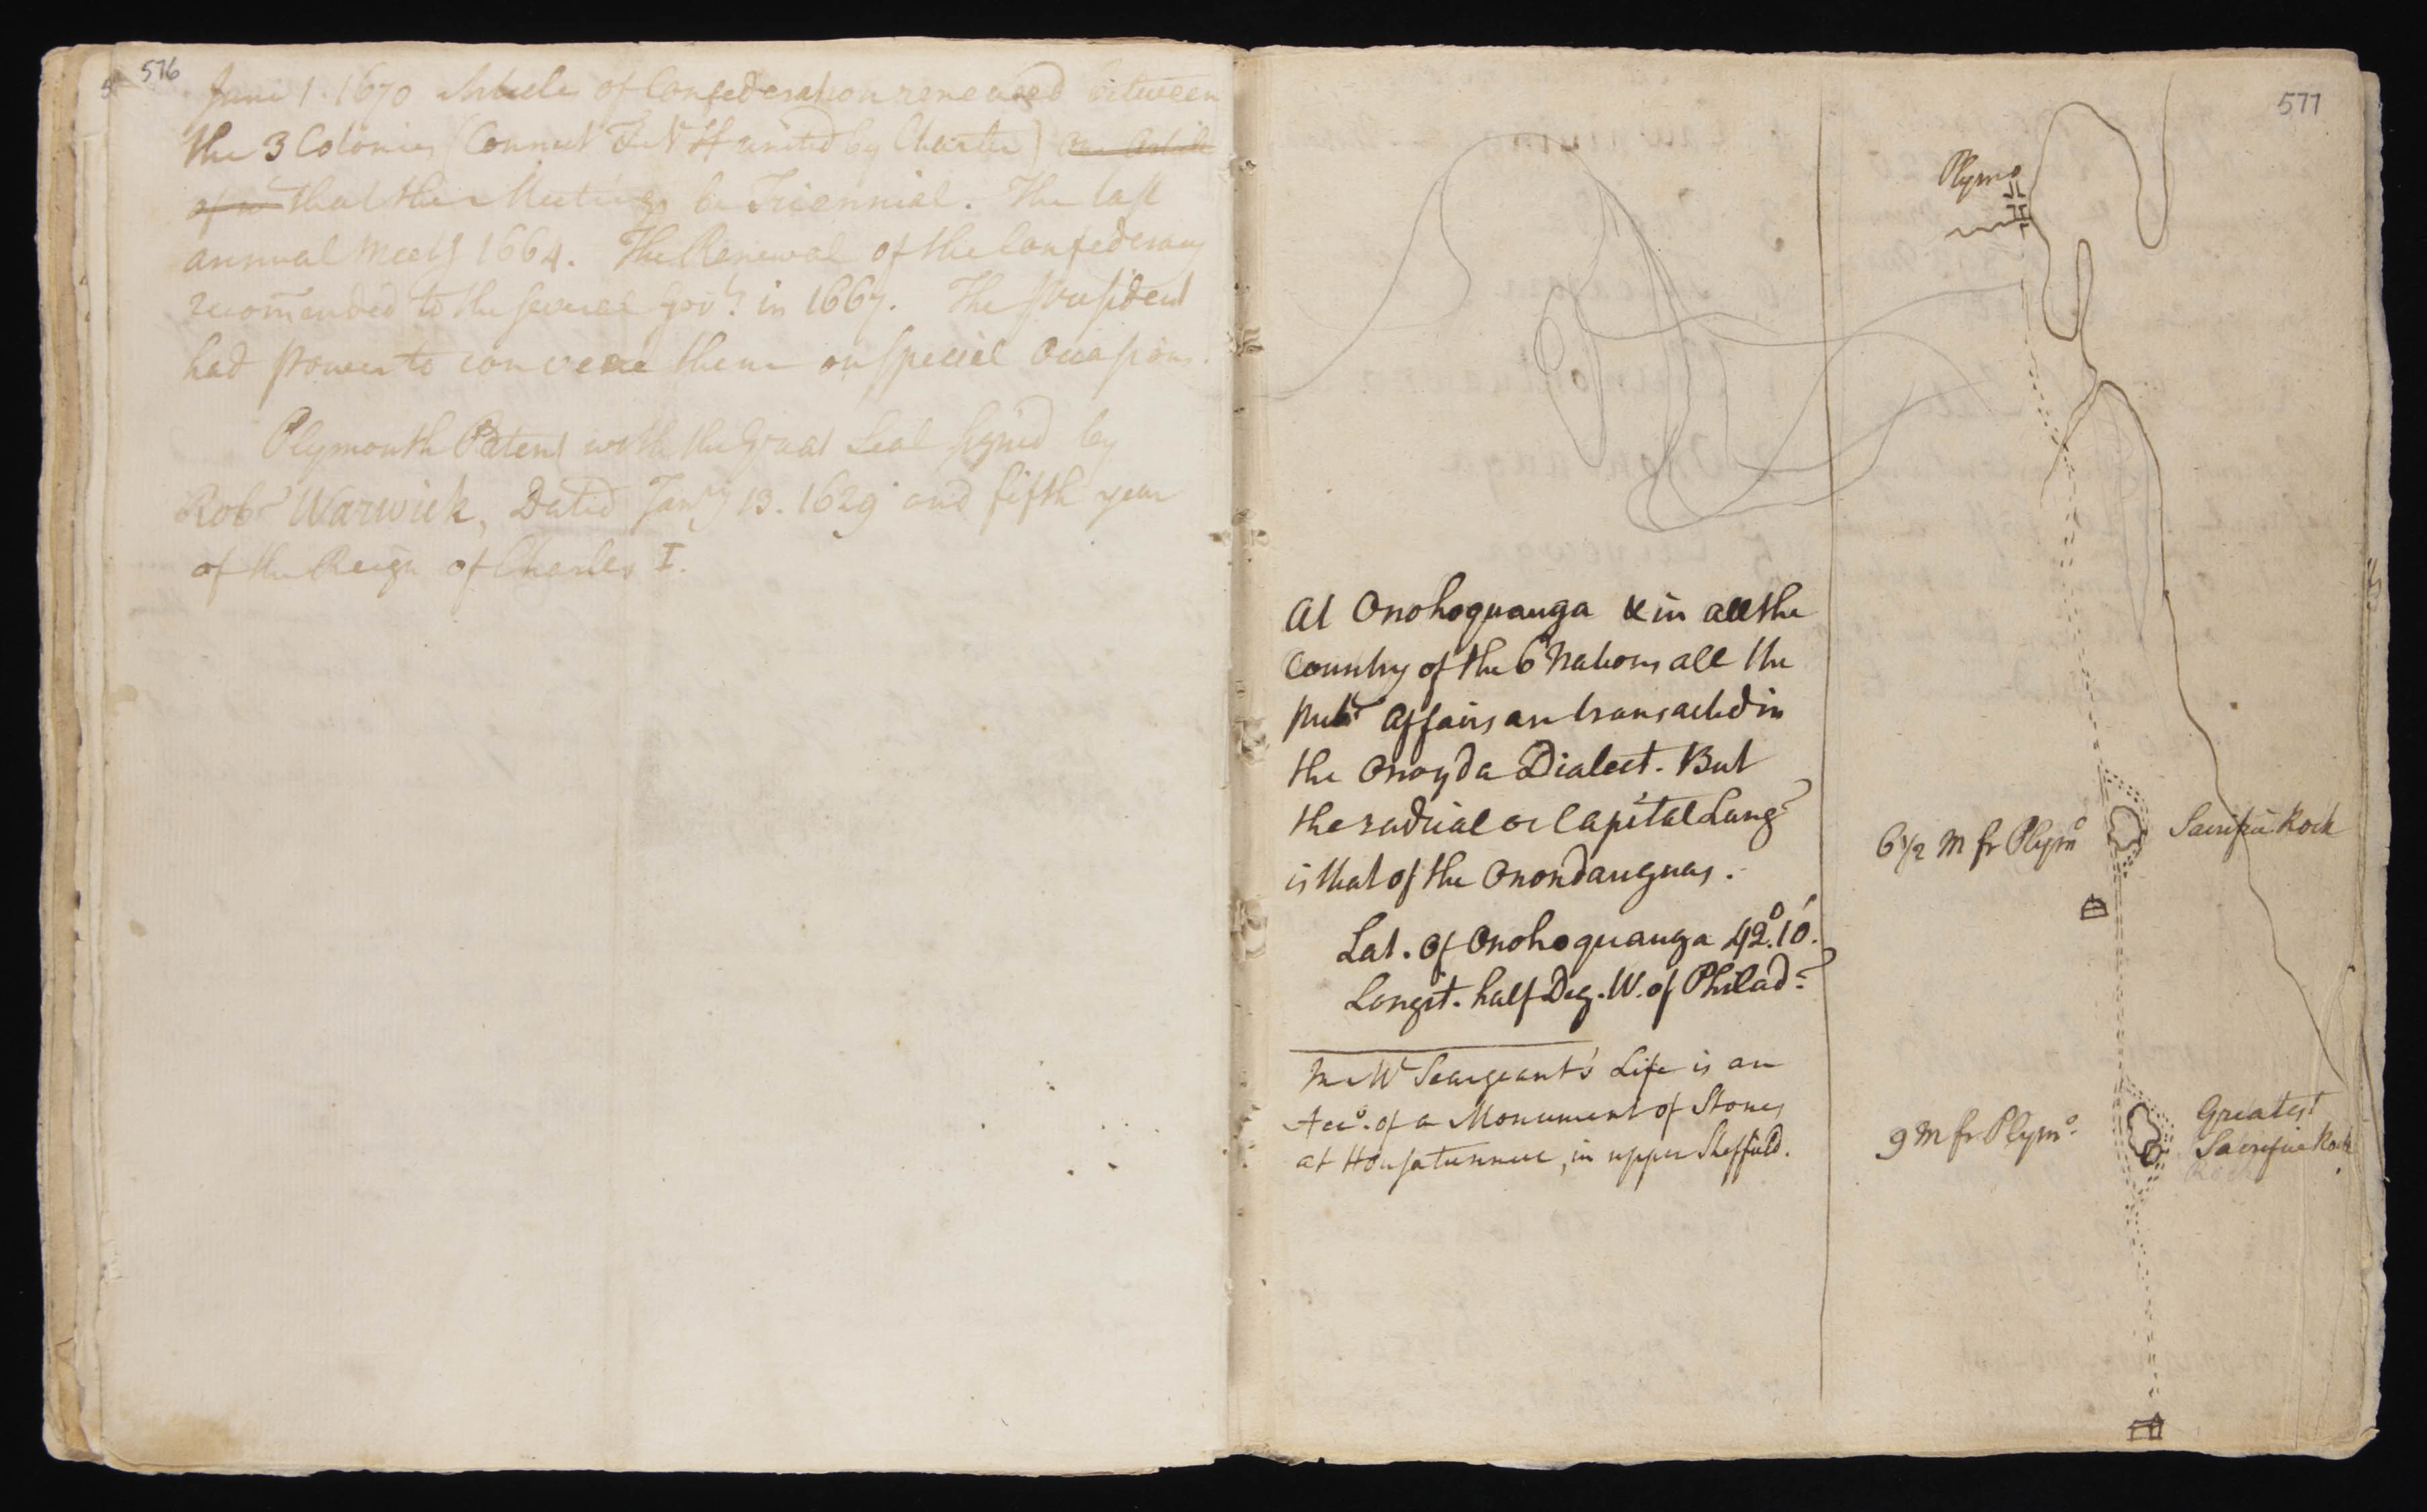 576
June 1. 1670 Articles of Confederation renewed between
the 3 Colonies (Connect & N H united by Charter) One Article
of wc that their Meetings be Triennial. The last
annual Meetg 1664. The Renewal of the Confederacy
recom̄ended to the several Govt. in 1667. The President
had power to convene them on special Occasions.
Plymouth Patent with the Great Seal signed by
Robt Warwick, Dated Jany 13. 1629 and fifth year
of the Reign of Charles I.
577
Plymo
At Onohoquauga & in all the
Country of the 6 Nations all the
pubc Affairs are transacted in
the Onoyda Dialect. But
the radical or Capital Lang.
is that of the Onondauguas.
Lat. of Onohoquauga 42°.10'.
Longit. half Deg. W. of Philad.
In Mr Seargeant's Life is an
Acco. of a Monument of Stones
at Housatunnuc, in upper Sheffield.
6 1/2 M fr Plymo
Sacrifice Rock
9 M fr Plymo.
Greatest
Sacrifice Rock
Rock